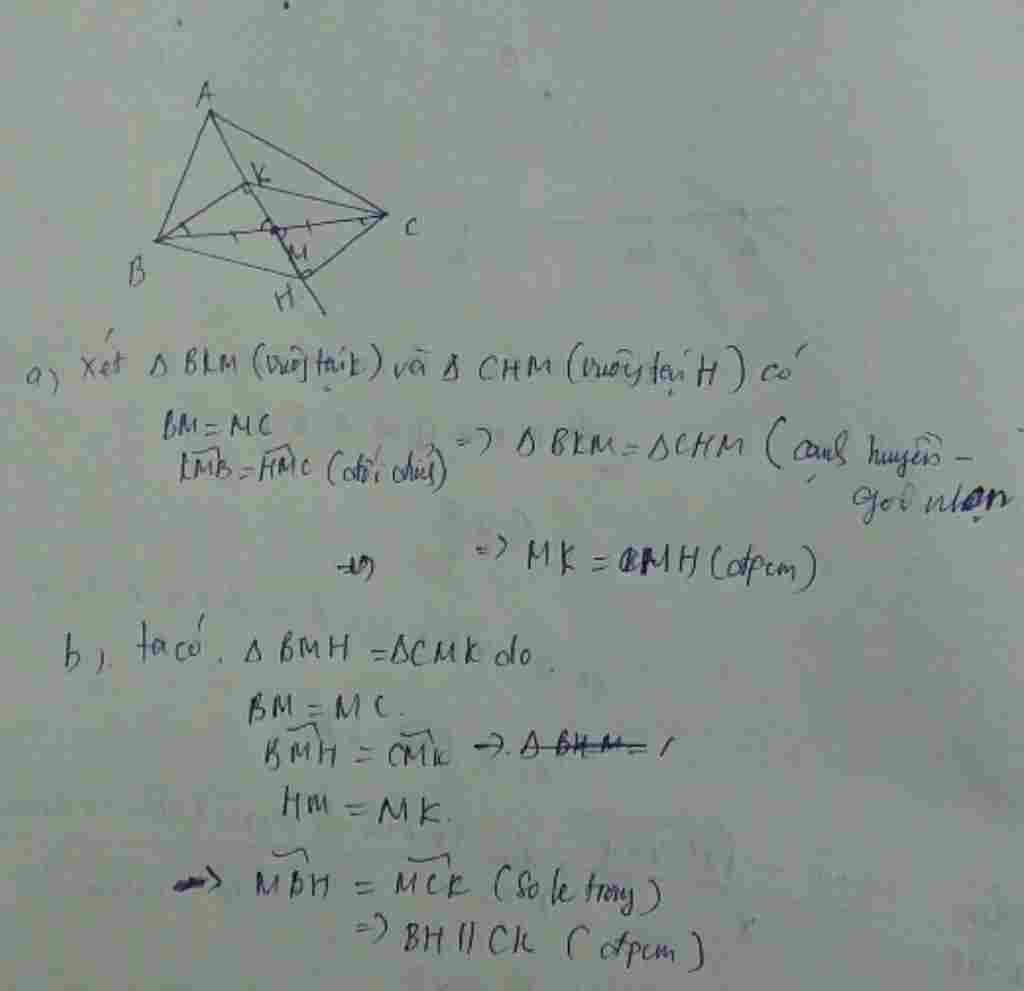 A
K
C
M
B
H
a, Xét Δ BKM (vuông tại K) và Δ CHM (vuông tại H) có
BM = MC
KMB = HMC (đối đỉnh) => Δ BKM = ΔCHM (cạnh huyền -
góc nhọn
=> MK = MH (đpcm)
b, ta có. Δ BMH = ΔCMK do.
BM = MC.
BMH = CMK
HM = MK.
-> MBH = MCK (so le trong)
=> BH // CK (đpcm)